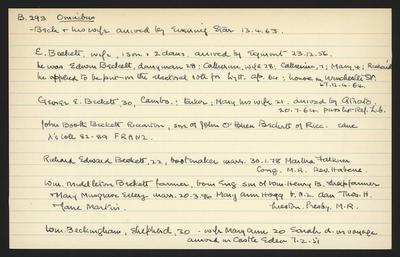 B.293 Omnibus
- Beck & his wife arrived by Evening Star 13.4.63.
E. Beckett, wife, 1 son & 2 daus. arrived by Egmont 23.12.56.
he was Edwin Beckett, dairyman 28; Catherine, wife 28; Catherine, 7; Mary, 4; Richard
he applied to be put on the electoral roll for Lytt. Ap. 64; house in Winchester St.
LT. 12.4.64.
George E. Beckett 30, Cambs.; baker; Mary his wife 21. arrived by
20.7.64. Ref. Lib.
John Booth Beckett Riccarton, son of John O'Brien Beckett of Ricc.
X's Coll 82-89 FRANZ.
Richard Edward Beckett, 22, bootmaker marr. 30.1.78 Martha Falkner
Cong. M.R. Rev. Habens
Wm. Middleton Beckett farmer, born Eng son of Wm Henry B. sheepfarmer
& Mary Musgrave marr. 20.3.96 Mary Ann Hogg b. N.Z. dau Thos. H.
& Jane Martin. Leeston. Presby. M.R.
Wm. Beckingham, Shepherd, 30 - wife Mary Ann 20 Sarah d. on voyage
arrived on Castle Eden 7.2.51